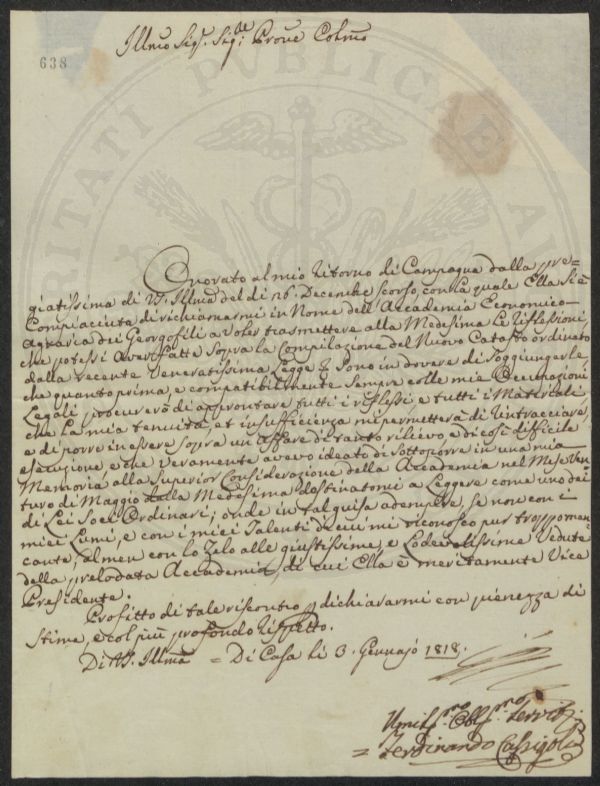 638
Illmo Sigr. Sigr. Prone Colmo
Onorato al mio ritorno di Campagna dalla pre=
giatissima di VS. Illma del dì 26. Decembre scorso, con la quale Ella si è
Compiaciuta di richiamarmi in Nome dell'Accademia Economico=
Agraria dei Georgofili a voler trasmettere alla Medesima le riflessioni
che potessi aver fatte sopra la Compilazione del Nuovo Catasto ordinato
dalla recente Veneratissima Legge Sono in dovere di Soggiungerle
che quanto prima, e compatibilmente sempre colle mie Occupazioni
Legali, procurerò di approntare tutti i riflessi, e tutti i Materiali
che la mia tenuità, et insufficienza mi permetterà di rintracciare
e di porre in essere sopra un affare di tanto rilievo, e di così difficile
esecuzione, e che veramente avevo ideato di sottoporre in una mia
Memoria alla Superior Considerazione della Accademia nel Mese Ven=
turo di Maggio dalla Medesima destinatomi a Leggere come uno dei
di Lei Socj Ordinarj; onde in tal guisa adempire, se non con i
miei Lumi, e con i miei Talenti di cui mi riconosco pur troppo man=
cante, almen con lo Zelo alle giustissime, e Lodevolissime Vedute
della prelodata Accademia, di cui Ella è meritamente Vice
Presidente.
Profitto di tale riscontro dichiararmi con pienezza di
stima, e col più profondo rispetto.
Di VS. Illma = Di Casa li 3. Gennajo 1818.
Umilssmo Obblssmo Servitr.
= Ferdinando
VERITATI PUBLICAE